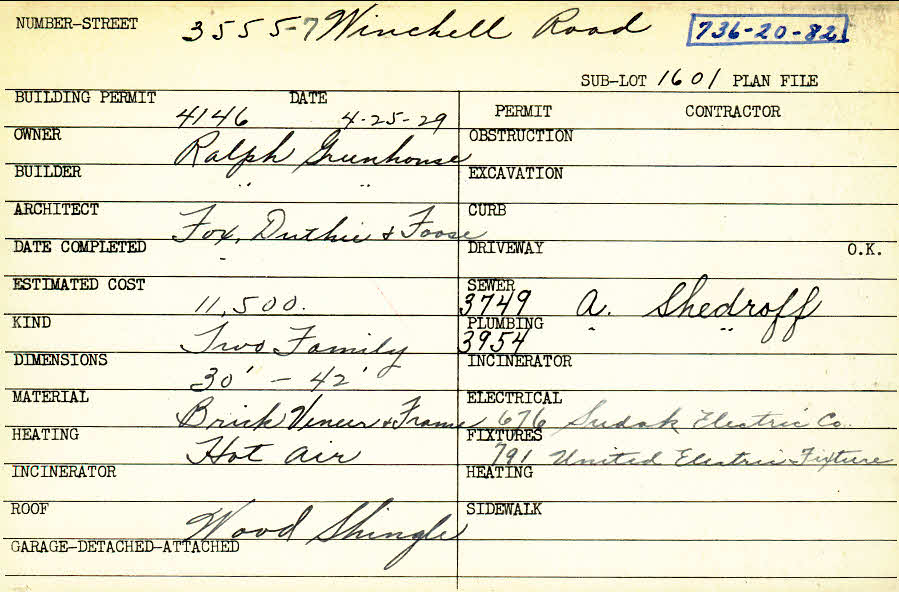 NUMBER-STREET 3555-7 Winchell Road 736-20-82
SUB-LOT 1601 PLAN FILE
BUILDING PERMIT DATE
4146 4-25-29
PERMIT CONTRACTOR
OWNER Ralph Greenhouse
OBSTRUCTION
BUILDER " "
EXCAVATION
ARCHITECT Fox, Duthie & Foose
CURB
DATE COMPLETED -
DRIVEWAY O.K.
ESTIMATED COST 11,500.
SEWER
3749 A. Shedroff
KIND Two Family
PLUMBING " "
3954
DIMENSIONS 30' - 42'
INCINERATOR
MATERIAL Brick Veneer & Frame
ELECTRICAL
676 Sudak Electric Co.
HEATING Hot Air
FIXTURES
791 United Electric Fixture
INCINERATOR
HEATING
ROOF Wood Shingle
SIDEWALK
GARAGE-DETACHED-ATTACHED